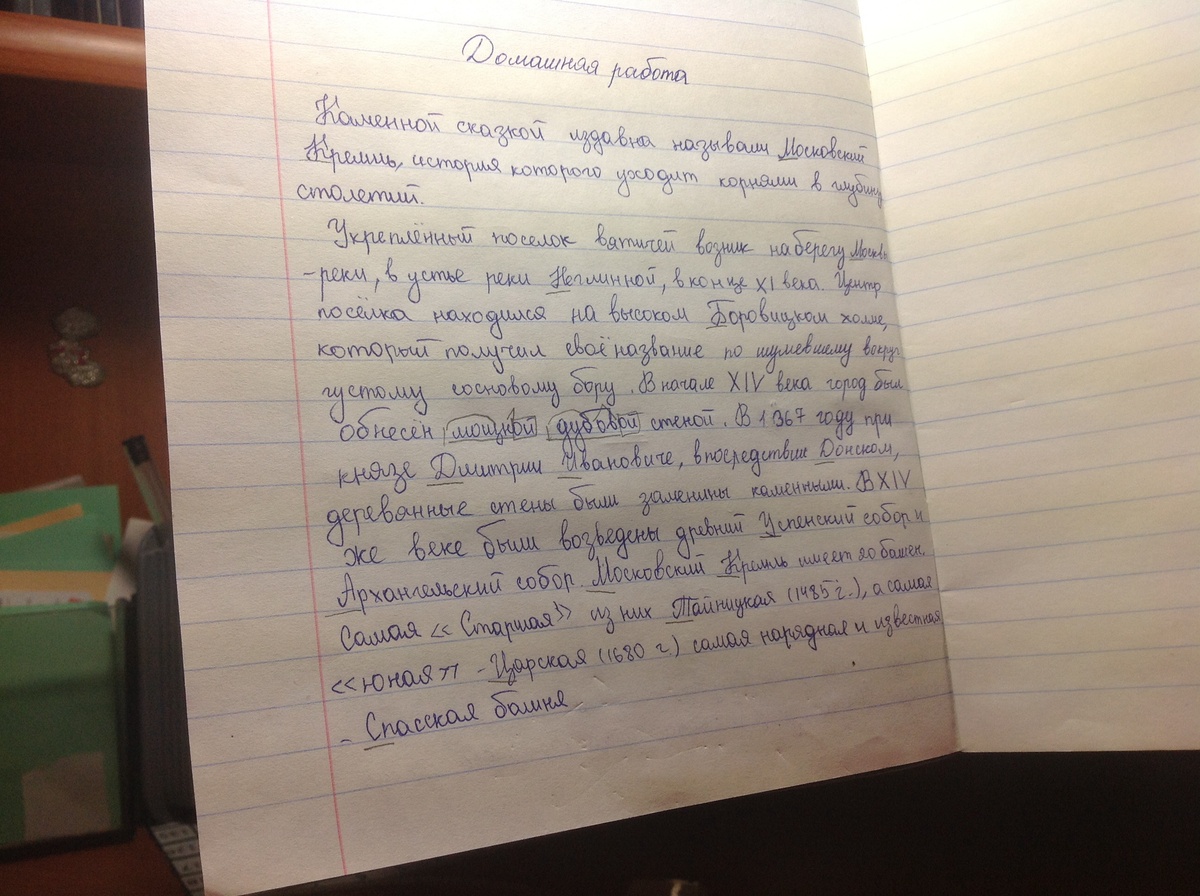 Домашная работа
Каменной сказкой издавна называли Московский
Кремль, история которого уходит корнями в глубину
столетий.
Укреплённый поселок вятичей возник на берегу Москвы
-реки, в устье реки Неглинной, в конце XI века. Центр
посёлка находился на высоком Боровицком холме,
который получил своё название по шумевшему вокруг
густому сосновому бору. В начале XIV века город был
обнесён мощной дубовой стеной. В 1367 году при
князе Дмитрии Ивановиче, впоследствие Донском,
деревянные стены были заменины каменными. В XIV
же веке были возведены древний Успенский собор и
Архангельский собор. Московский Кремль имеет 20 башен.
Самая «Старшая» из них Тайницкая (1485 г.), а самая
«юная» - Царская (1680 г.) самая нарядная и известная
- Спасская башня